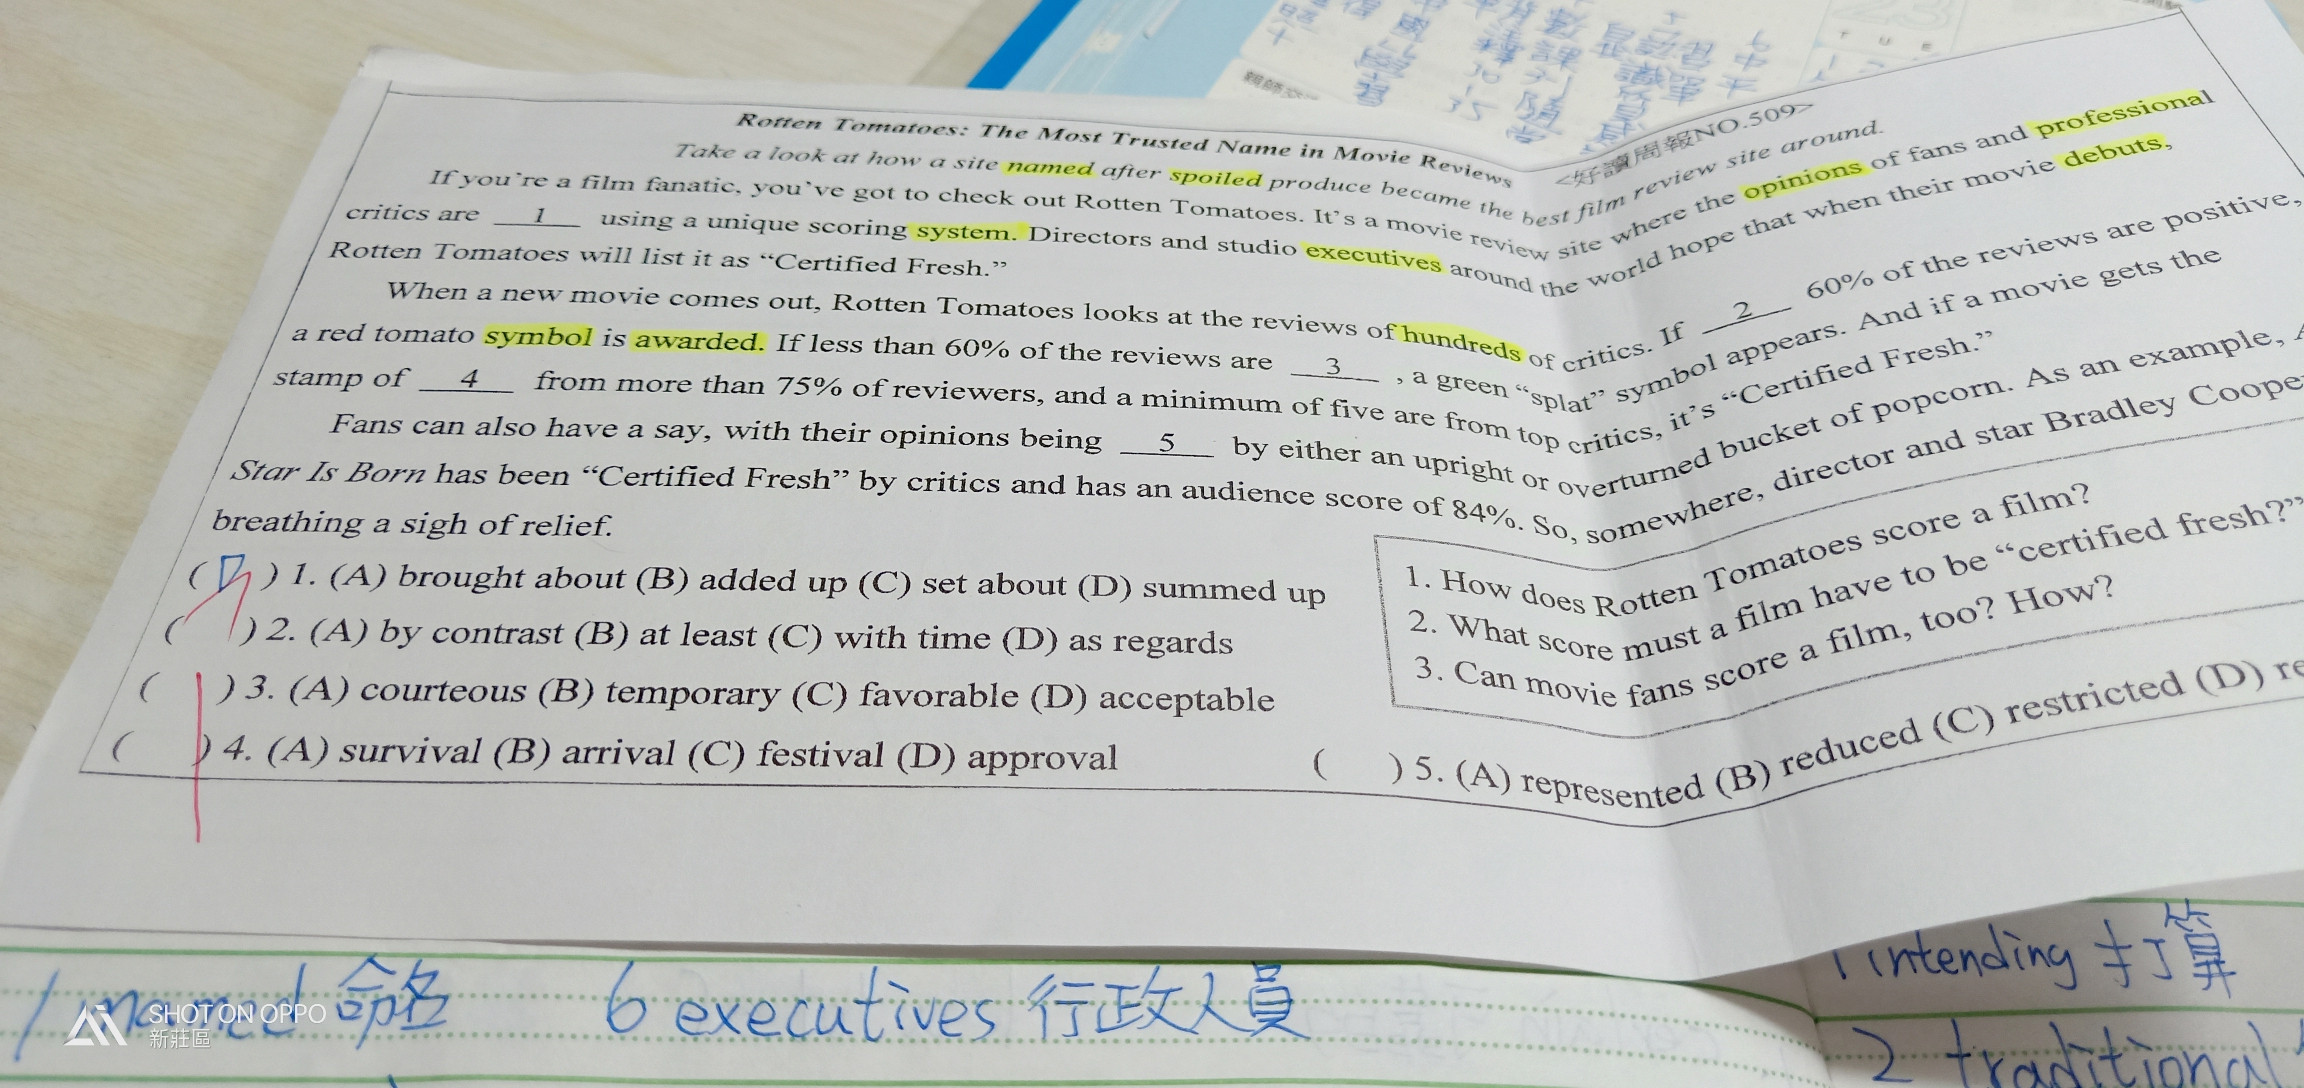 Rotten Tomatoes: The Most Trusted Name in Movie Reviews <好讀周報NO.509>
Take a look at how a site named after spoiled produce became the best film review site around.
If you're a film fanatic, you've got to check out Rotten Tomatoes. It's a movie review site where the opinions of fans and professional
critics are 1 using a unique scoring system. Directors and studio executives around the world hope that when their movie debuts,
Rotten Tomatoes will list it as “Certified Fresh.”
When a new movie comes out, Rotten Tomatoes looks at the reviews of hundreds of critics. If 2 60% of the reviews are positive,
a red tomato symbol is awarded. If less than 60% of the reviews are 3 , a green “splat” symbol appears. And if a movie gets the
stamp of 4 from more than 75% of reviewers, and a minimum of five are from top critics, it's “Certified Fresh.”
Fans can also have a say, with their opinions being 5 by either an upright or overturned bucket of popcorn. As an example, A
Star Is Born has been “Certified Fresh” by critics and has an audience score of 84%. So, somewhere, director and star Bradley Cooper
breathing a sigh of relief.
( D ) 1. (A) brought about (B) added up (C) set about (D) summed up
( ) 2. (A) by contrast (B) at least (C) with time (D) as regards
( ) 3. (A) courteous (B) temporary (C) favorable (D) acceptable
( ) 4. (A) survival (B) arrival (C) festival (D) approval
1. How does Rotten Tomatoes score a film?
2. What score must a film have to be “certified fresh?”
3. Can movie fans score a film, too? How?
( ) 5. (A) represented (B) reduced (C) restricted (D) re
1 named 命名
6 executives 行政人員
1 intending 打算
2 traditional
SHOT ON OPPO
新莊區